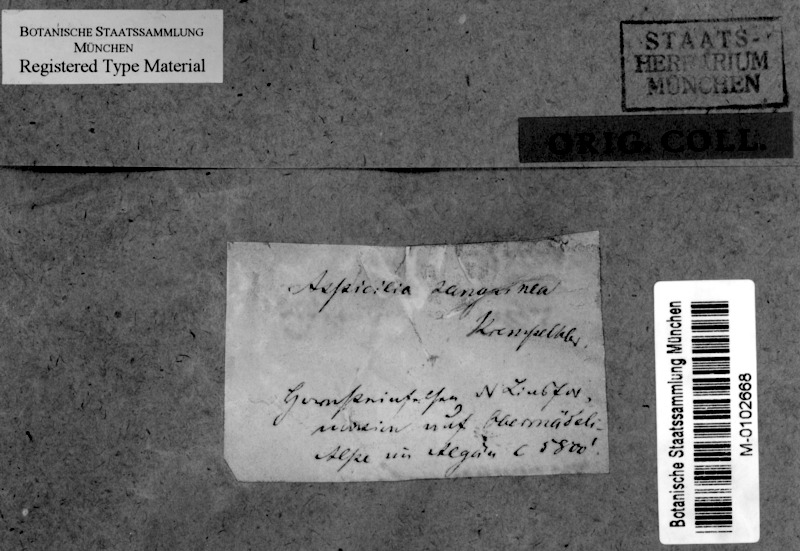 BOTANISCHE STAATSSAMMLUNG
MÜNCHEN
Registered Type Material
STAATS-
HERBARIUM
MÜNCHEN
ORIG. COLL.
Aspicilia sanguinea
Krempelhbr.
Hornsteinfelsen
auf Obermädeli-
Alpe im Algäu c 5800'.
Botanische Staatssammlung München
M-0102668